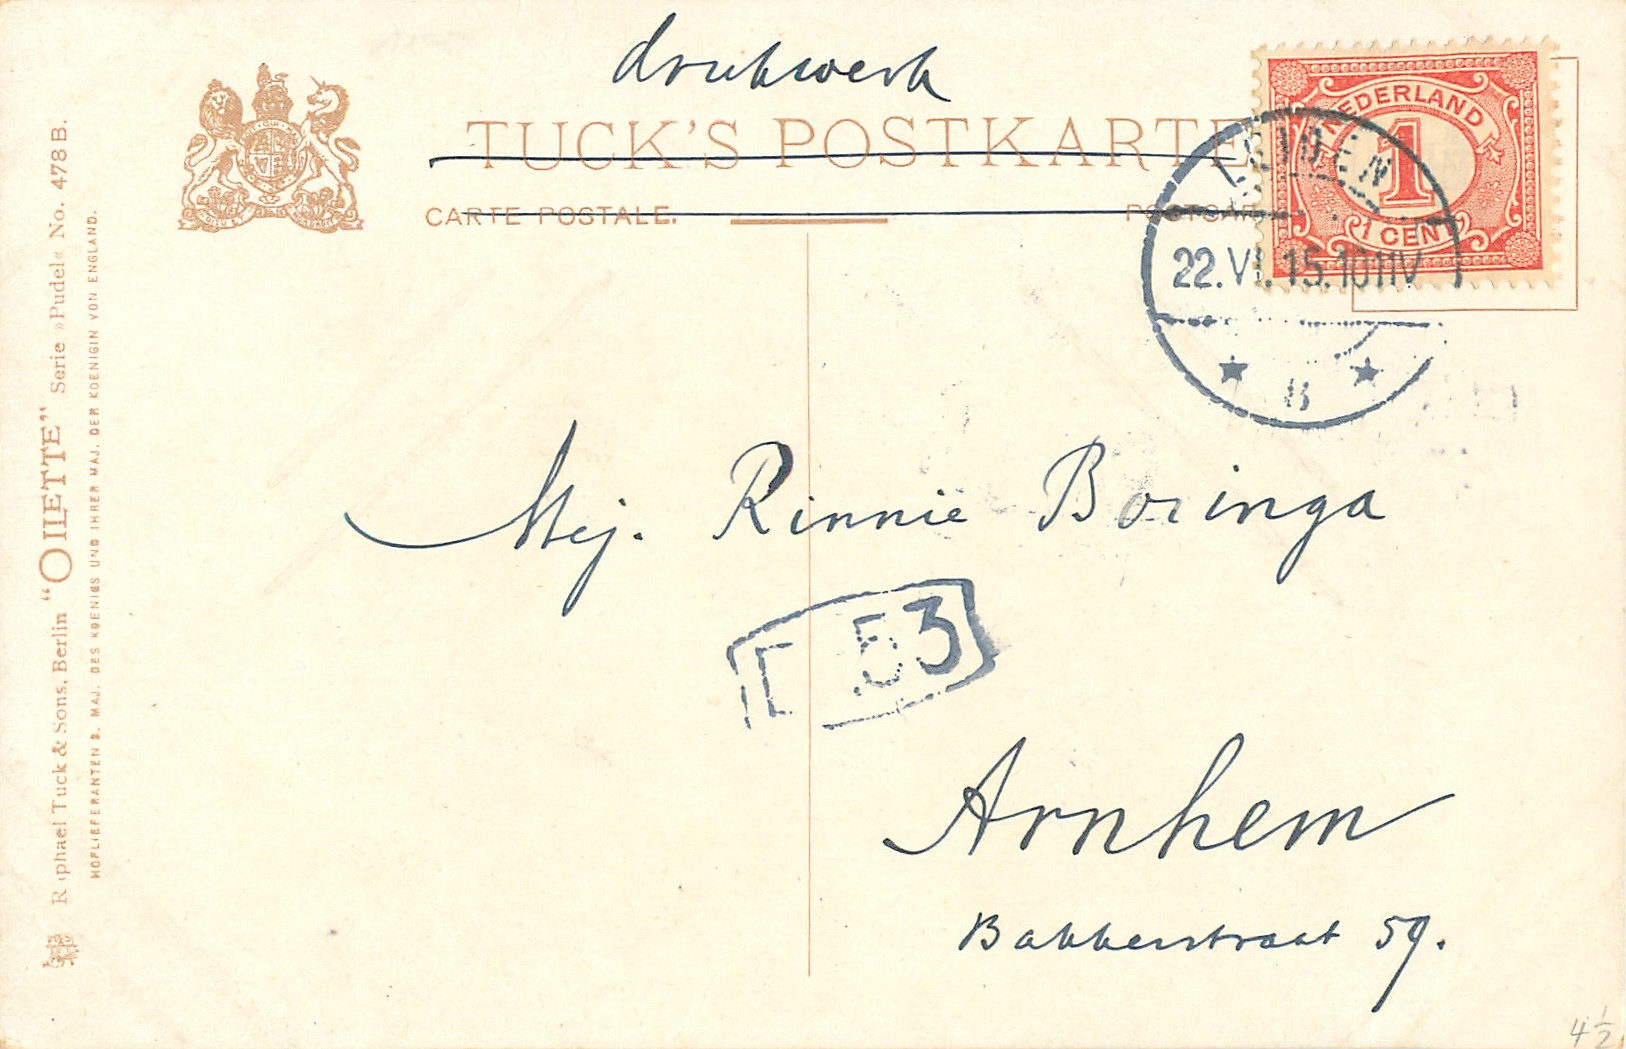 drukwerk
TUCK'S POSTKARTE
CARTE POSTALE.
NEDERLAND
1
1 CENT
22.VI.15.10-11V
B
Mej. Rinnie Boringa
53
Arnhem
Bakkerstraat 59.
4½
Raphael Tuck & Sons, Berlin "OILETTE" Serie »Pudel« No. 478 B.
HOFLIEFERANTEN S. MAJ. DES KOENIGS UND IHRER MAJ. DER KOENIGIN VON ENGLAND.